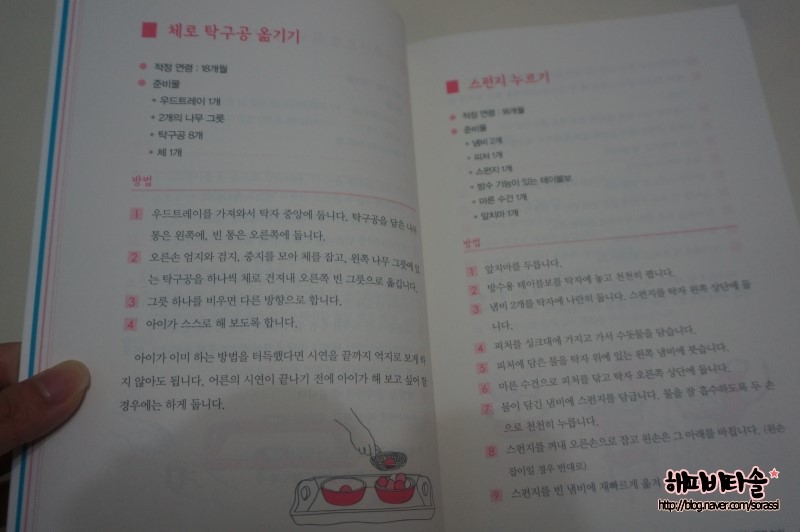 체로 탁구공 옮기기
적정 연령 : 18개월
준비물
• 우드트레이 1개
• 2개의 나무 그릇
• 탁구공 8개
• 체 1개
방법
1 우드트레이를 가져와서 탁자 중앙에 둡니다. 탁구공을 담은 나무
통은 왼쪽에, 빈 통은 오른쪽에 둡니다.
2 오른손 엄지와 검지, 중지를 모아 체를 잡고, 왼쪽 나무 그릇에 있
는 탁구공을 하나씩 체로 건져내 오른쪽 빈 그릇으로 옮깁니다.
3 그릇 하나를 비우면 다른 방향으로 합니다.
4 아이가 스스로 해 보도록 합니다.
아이가 이미 하는 방법을 터득했다면 시연을 끝까지 억지로 보게 하
지 않아도 됩니다. 어른의 시연이 끝나기 전에 아이가 해 보고 싶어 할
경우에는 하게 둡니다.
스펀지 누르기
적정 연령 : 18개월
준비물
• 냄비 2개
• 피처 1개
• 스펀지 1개
• 방수 기능이 있는 테이블보
• 마른 수건 1개
• 앞치마 1개
방법
1 앞치마를 두릅니다.
2 방수용 테이블보를 탁자에 놓고 천천히 폅니다.
3 냄비 2개를 탁자에 나란히 둡니다. 스펀지를 탁자 왼쪽 상단에 둡
니다.
4 피처를 싱크대에 가지고 가서 수돗물을 담습니다.
5 피처에 담은 물을 탁자 위에 있는 왼쪽 냄비에 붓습니다.
6 마른 수건으로 피처를 닦고 탁자 오른쪽 상단에 둡니다.
7 물이 담긴 냄비에 스펀지를 담급니다. 물을 잘 흡수하도록 두 손
으로 천천히 누릅니다.
8 스펀지를 꺼내 오른손으로 잡고 왼손은 그 아래를 바칩니다. (왼손
잡이일 경우 반대로)
9 스펀지를 빈 냄비에 재빠르게 옮겨
해피바타솔
http://blog.naver.com/sorassl